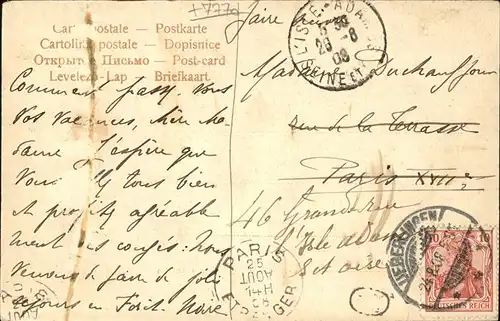 +7770
Carte postale — Postkarte
Cartolina postale — Dopisnice
Открытое Письмо — Post-card
Levelező-Lap — Briefkaart
Comment passez-Vous
Vos Vacances, chère Ma-
dame J'espère que
Vous tous bien
et profitez agréable
ment congés: Nous
Venons de faire de jolis
séjours en Forêt Noire
faire suivre
Madame Duchauffour
rue de la Terrasse
Paris XVIIe
46 Grande rue
L'Isle Adam
S et Oise
L'ISLE-ADAM
28 - 8
08
SEINE ET
PARIS
25
AOUT
14H
08
ETRANGER
UEBERLINGEN
10
DEUTSCHES REICH